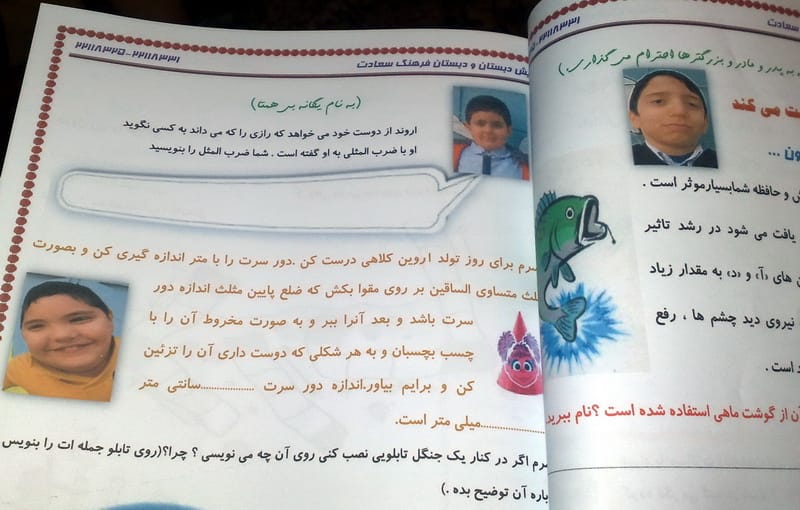 ۲۲۱۱۸۳۲۵-۲۲۱۱۸۳۳۱
دبستان و دبستان فرهنگ سعادت
(به نام یگانه بی همتا)
اروند از دوست خود می خواهد که رازی را که می داند به کسی نگوید
او با ضرب المثلی به او گفته است . شما ضرب المثل را بنویسید
برای روز تولد اروین کلاهی درست کن .دور سرت را با متر اندازه گیری کن و بصورت
متساوی الساقین بر روی مقوا بکش که ضلع پایین مثلث اندازه دور
سرت باشد و بعد آنرا ببر و به صورت مخروط آن را با
چسب بچسبان و به هر شکلی که دوست داری آن را تزئین
کن و برایم بیاور.اندازه دور سرت ..................سانتی متر
..................میلی متر است.
اگر در کنار یک جنگل تابلویی نصب کنی روی آن چه می نویسی ؟ چرا؟(روی تابلو جمله ات را بنویس
آن توضیح بده .)
سعادت
۲۲۱۱۸۳۳۱
به پدر و مادر و بزرگترها احترام می گذاری.)
می کند
...
و حافظه شمابسیارموثر است .
یافت می شود در رشد تاثیر
های «آ» و «د» به مقدار زیاد
نیروی دید چشم ها ، رفع
است .
آن از گوشت ماهی استفاده شده است ؟نام ببرید